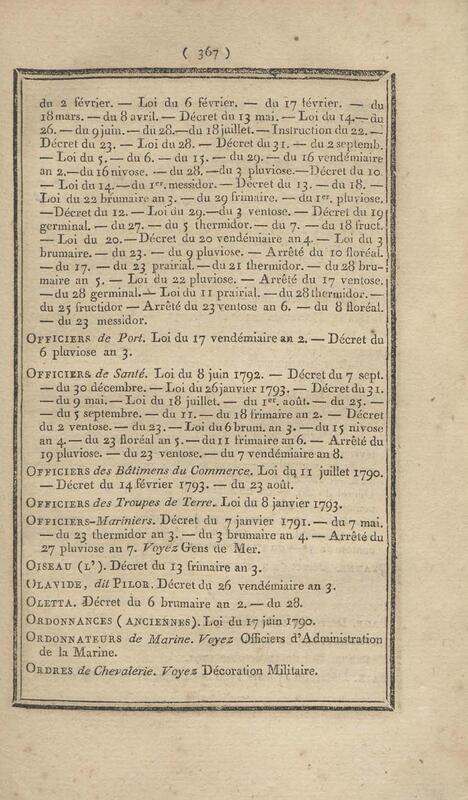 ( 367 )
du 2 février. — Loi du 6 février. — du 17 février. — du
18 mars. — du 8 avril. — Décret du 13 mai. — Loi du 14. — du
26. — du 9 juin. — du 28. — du 18 juillet. — Instruction du 22. —
Décret du 23. — Loi du 28. — Décret du 31. — du 2 septemb.
— Loi du 5. — du 6. — du 15. — du 29. — du 16 vendémiaire
an 2. — du 16 nivose. — du 28. — du 3 pluviose. — Décret du 10.
— Loi du 14. — du 1er. messidor. — Décret du 13. — du 18. —
Loi du 22 brumaire an 3. — du 29 frimaire. — du 1er. pluviose.
— Décret du 12. — Loi du 29. — du 3 ventose. — Décret du 19
germinal. — du 27. — du 5 thermidor. — du 7. — du 18 fruct.
— Loi du 20. — Décret du 20 vendémiaire an 4. — Loi du 3
brumaire. — du 23. — du 9 pluviose. — Arrêté du 10 floréal.
— du 17. — du 23 prairial. — du 21 thermidor. — du 28 bru-
maire an 5. — Loi du 22 pluviose. — Arrêté du 17 ventose.
— du 28 germinal. — Loi du 11 prairial. — du 28 thermidor. —
du 25 fructidor — Arrêté du 23 ventose an 6. — du 8 floréal.
— du 23 messidor.
OFFICIERS de Port. Loi du 17 vendémiaire an 2. — Décret du
6 pluviose an 3.
OFFICIERS de Santé. Loi du 8 juin 1792. — Décret du 7 sept.
— du 30 décembre. — Loi du 26 janvier 1793. — Décret du 31.
— du 9 mai. — Loi du 18 juillet. — du 1er. août. — du 25. —
— du 5 septembre. — du 11. — du 18 frimaire an 2. — Décret
du 2 ventose. — du 23. — Loi du 6 brum. an 3. — du 15 nivose
an 4. — du 23 floréal an 5. — du 11 frimaire an 6. — Arrêté du
19 pluviose. — du 23 ventose. — du 7 vendémiaire an 8.
OFFICIERS des Bâtimens du Commerce. Loi du 11 juillet 1790.
— Décret du 14 février 1793. — du 23 août.
OFFICIERS des Troupes de Terre. Loi du 8 janvier 1793.
OFFICIERS-Mariniers. Décret du 7 janvier 1791. — du 7 mai.
— du 23 thermidor an 3. — du 3 brumaire an 4. — Arrêté du
27 pluviose an 7. Voyez Gens de Mer.
OISEAU (L'). Décret du 13 frimaire an 3.
OLAVIDE, dit PILOR. Décret du 26 vendémiaire an 3.
OLETTA. Décret du 6 brumaire an 2. — du 28.
ORDONNANCES (ANCIENNES). Loi du 17 juin 1790.
ORDONNATEURS de Marine. Voyez Officiers d'Administration
de la Marine.
ORDRES de Chevalerie. Voyez Décoration Militaire.